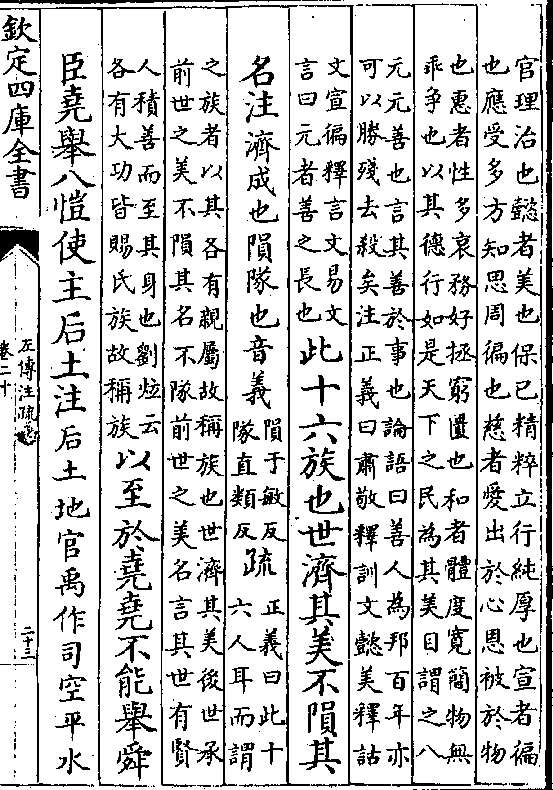 官理治也懿者美也保已精粹立行純厚也宣者徧
也應受多方知思周徧也慈者愛出於心恩被於物
也惠者性多哀務好拯窮匱也和者體度寬簡物無
乖爭也以其德行如是天下之民為其美目謂之八
元元善也言其善於事也論語曰善人為邦百年亦
可以勝殘去殺矣注正義曰肅敬釋訓文懿美釋詁
文宣徧釋言文易文
言曰元者善之長也
此十六族也世濟其美不隕其
名注濟成也隕隊也音義
隕于敏反
隊直類反
疏
正義曰此十
六人耳而謂
之族者以其各有親屬故稱族也世濟其美後世承
前世之美不隕其名不隊前世之美名言其世有賢
人積善而至其身也劉炫云
各有大功皆賜氏族故稱族
以至於堯堯不能舉舜
臣堯舉八愷使主后土注后土地官禹作司空平水
欽定四庫全書
左傳注疏
卷二十
二十三